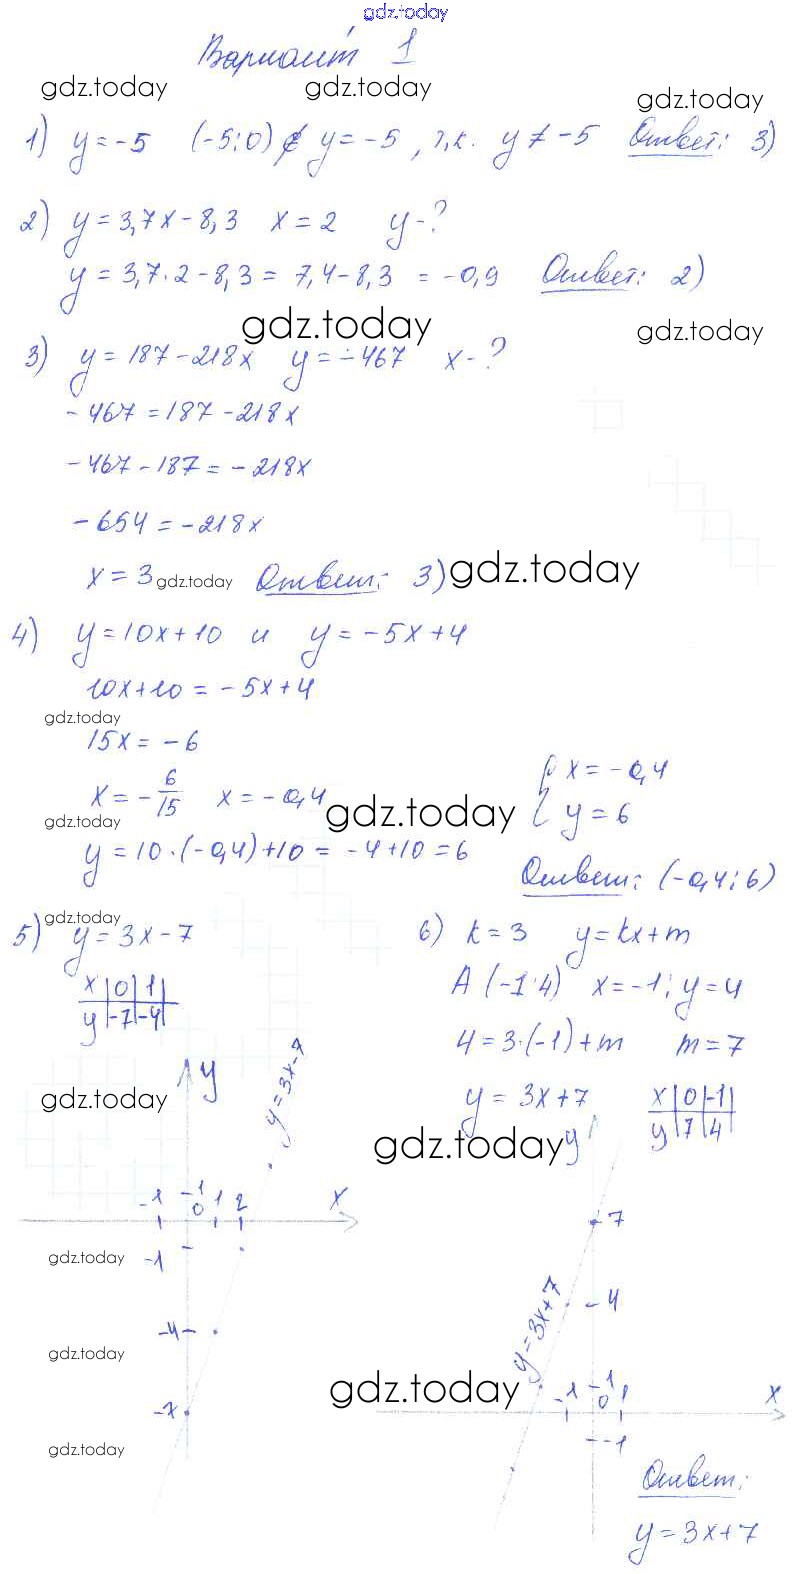 gdz.today
Вариант 1
gdz.today gdz.today gdz.today
1) y = -5 (-5; 0) ∉ y = -5, т.к. y ≠ -5 Ответ: 3)
2) y = 3,7x - 8,3 x = 2 y - ?
y = 3,7 · 2 - 8,3 = 7,4 - 8,3 = -0,9 Ответ: 2)
gdz.today gdz.today
3) y = 187 - 218x y = -467 x - ?
-467 = 187 - 218x
-467 - 187 = -218x
-654 = -218x
x = 3 gdz.today Ответ: 3) gdz.today
4) y = 10x + 10 и y = -5x + 4
10x + 10 = -5x + 4
gdz.today
15x = -6
x = -6/15 x = -0,4 { x = -0,4
gdz.today gdz.today { y = 6
y = 10 · (-0,4) + 10 = -4 + 10 = 6
Ответ: (-0,4; 6)
gdz.today
5) y = 3x - 7
x | 0 | 1 |
y | -7 | -4 |
6) k = 3 y = kx + m
A (-1; 4) x = -1; y = 4
4 = 3 · (-1) + m m = 7
y = 3x + 7
x | 0 | -1 |
y | 7 | 4 |
gdz.today gdz.today
y y = 3x - 7
-1 1 0 1 2 x
gdz.today
-1
-4
gdz.today
-7
gdz.today
y
7
4
y = 3x + 7
gdz.today
-1 1 0 1 x
-1
Ответ:
y = 3x + 7